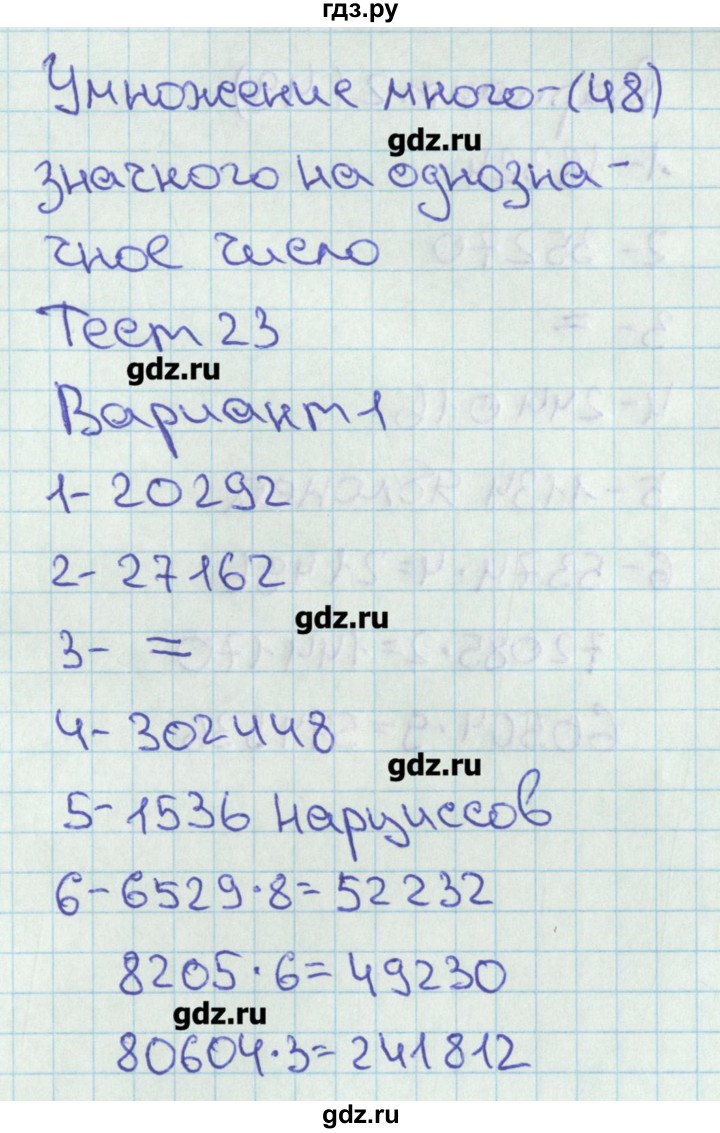 гдз.ру
Умножение много-(48)
gdz.ru
значного на однозна-
чное число
Тест 23
gdz.ru
Вариант 1
1- 20292
2- 27162
gdz.ru
3- =
4- 302448
gdz.ru
5- 1536 нарциссов
6- 6529·8= 52232
8205·6= 49230
gdz.ru
80604·3= 241812
gdz.ru